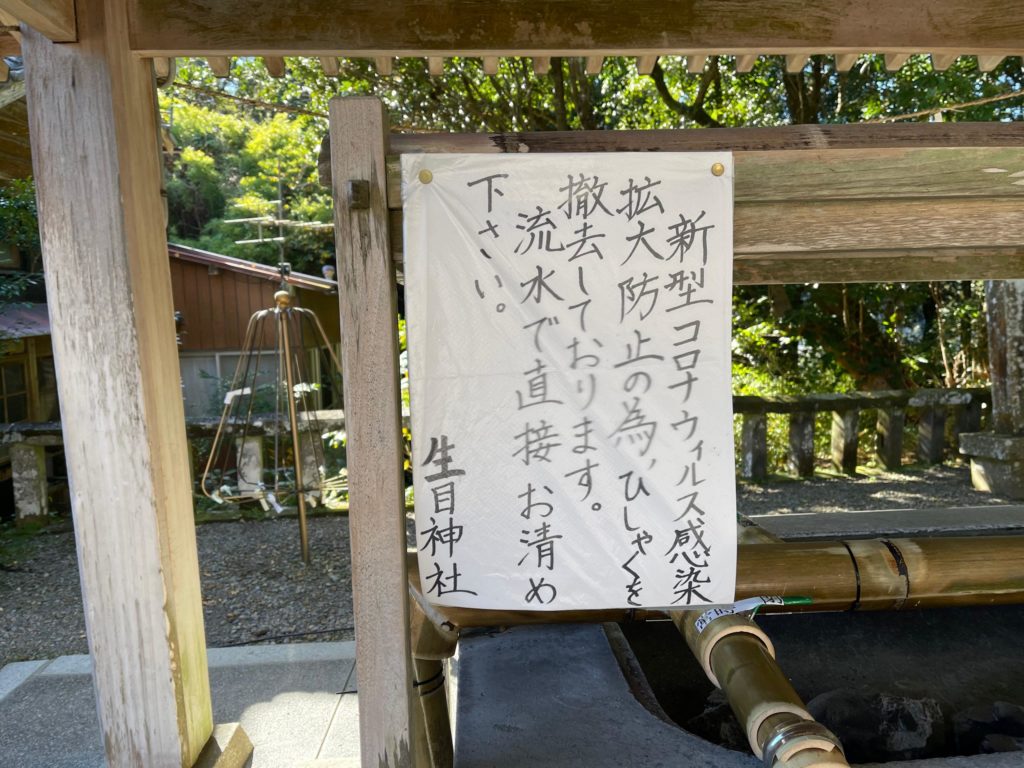 新型コロナウィルス感染
拡大防止の為、ひしゃくを
撤去しております。
流水で直接お清め
下さい。
生目神社